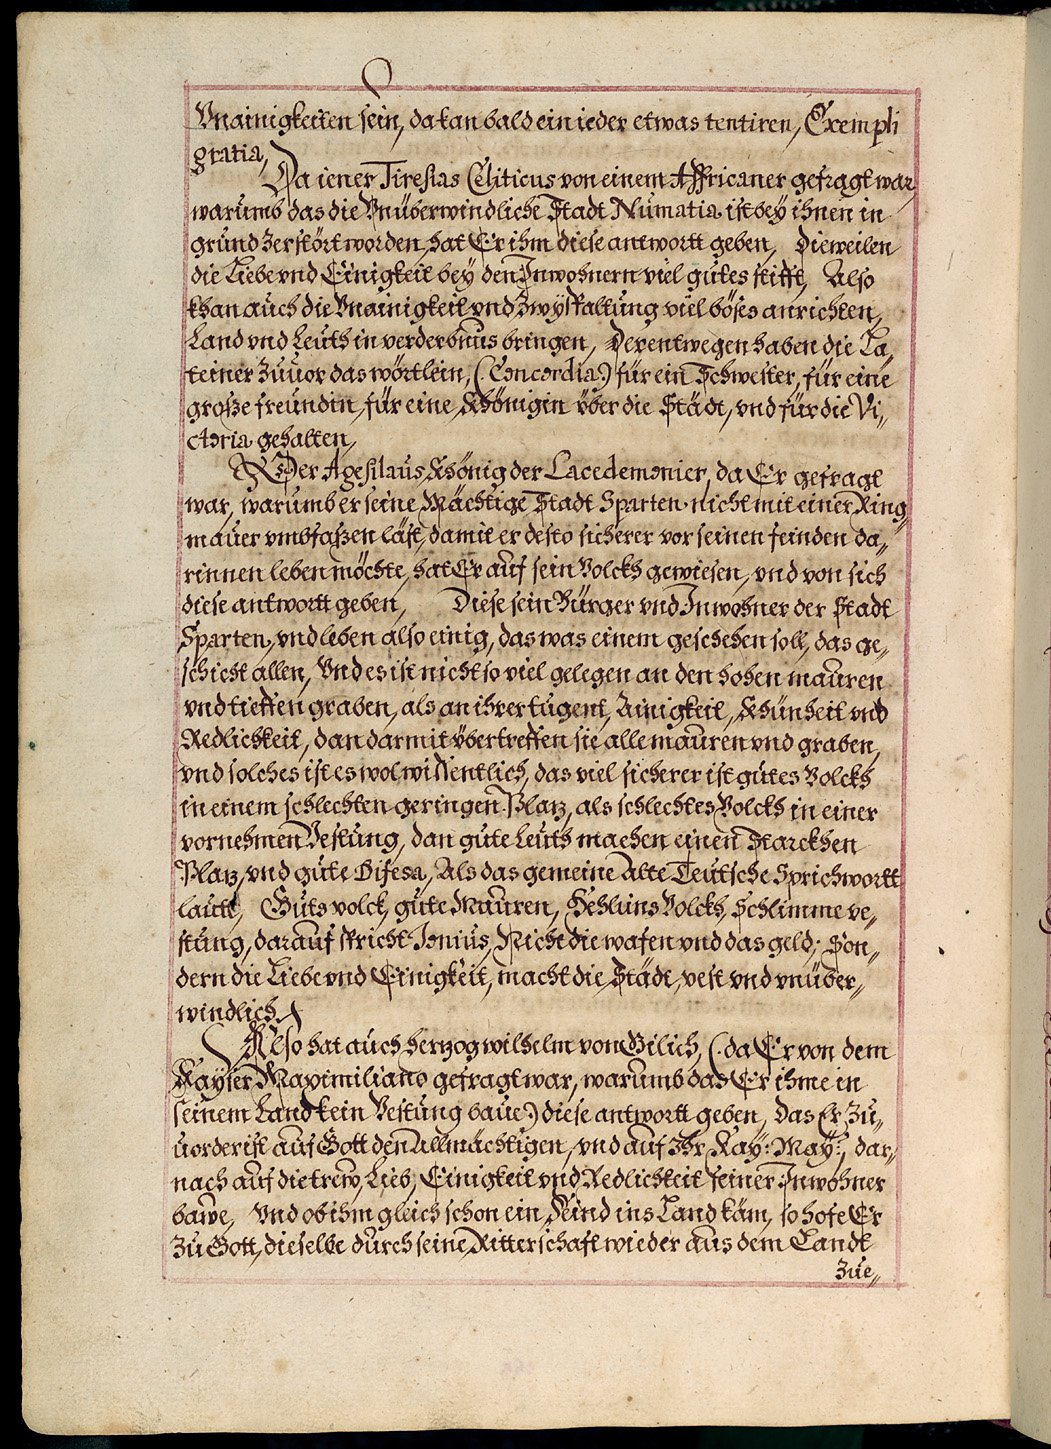 Vnainigkeiten sein, da kan bald ein ieder etwas tentiren, Exempli
gratia,
Da iener Tiresias Celiticus von einem Affricaner gefragt war,
warumb das die Vnüberwindliche Stadt Numatia ist bey ihnen in
grund zerstört worden, hat Er ihm diese antwortt geben, Dieweilen
die Liebe vnd Einigkeit bey den Inwohnern viel gutes stifft, Also
khan auch die Vnainigkeit vnd Zwyspaltung viel böses anrichten,
Land vnd Leuth in verderbnus bringen, Derentwegen haben die La„
teiner zuuor das wörtlein, (Concordia:) für ein Schwester, für eine
große freundin, für eine Khönigin über die Städt, vnd für die Vi„
ctoria gehalten,
Der Agesilaus, Khönig der Lacedemonier, da Er gefragt
war, warumb er seine Mächtige Stadt Sparten nicht mit einer Ring„
mauer vmbfaßen läst, damit er desto sicherer vor seinen feinden da„
rinnen leben möchte, hat Er auf sein Volckh gewiesen, vnd von sich
diese antwortt geben, Diese sein Bürger vnd Inwohner der Stadt
Sparten, vnd leben also einig, das was einem geschehen soll, das ge„
schicht allen, Vnd es ist nicht so viel gelegen an den hohen mauren
vnd tieffen graben, als an ihrer tugent, Ainigkeit, Khünheit vnd
Redlichkeit, dan darmit übertreffen sie alle mauren vnd graben,
vnd solches ist es wol wissentlich, das viel sicherer ist gutes Volckh
in einem schlechten geringen Platz, als schlechtes Volckh in einer
vornehmen Vestung, dan gute Leuth machen einen Starckhen
Platz, vnd gute Difesa, Als das gemeine Alte Teutsche Sprichwortt
lautt, Guts volck, gute Mauren, Schlims Volckh, Schlimme ve„
stung, darauf spricht Ionius, Nicht die wafen vnd das geld, Son„
dern die Liebe vnd Einigkeit, macht die Städt, vest vnd vnüber„
windlich.
Also hat auch herzog wilhelm von Gilich, (da Er von dem
Kayser Maximiliano gefragt war, warumb das Er ihme in
seinem Land kein Vestung baue) diese antwortt geben, Das Er zu„
uorderist auf Gott den Allmächtigen, vnd auf Ihr, Kay: May:, dar„
nach auf die trew, Lieb, Einigkeit vnd Redlichkeit seiner Inwohner
bawe, Vnd ob ihm gleich schon ein Feind ins Land käm, so hofe Er
zu Gott, dieselbe durch seine Ritterschaft wieder aus dem Landt
zue„